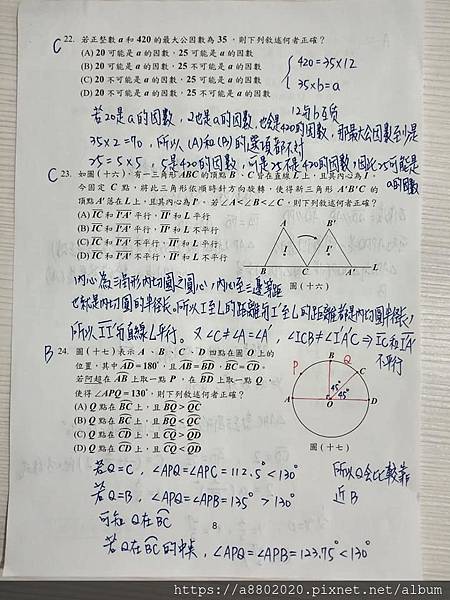 C 22. 若正整數 a 和 420 的最大公因數為 35，則下列敘述何者正確？
(A) 20 可能是 a 的因數，25 可能是 a 的因數
(B) 20 可能是 a 的因數，25 不可能是 a 的因數
(C) 20 不可能是 a 的因數，25 可能是 a 的因數
(D) 20 不可能是 a 的因數，25 不可能是 a 的因數
420=35×12
35×b=a
12與b互質
若20是a的因數，2也是a的因數，也會是420的因數，那最大公因數至少是
35×2=70，所以(A)和(B)的選項都不對
25=5×5，5是420的因數，可是25不是420的因數，因此25可能是
a的因數
C 23. 如圖(十六)，有一三角形 ABC 的頂點 B、C 皆在直線 L 上，且其內心為 I。
今固定 C 點，將此三角形依順時針方向旋轉，使得新三角形 A'B'C 的
頂點 A' 落在 L 上，且其內心為 I'。若∠A<∠B<∠C，則下列敘述何者正確？
(A) IC 和 I'A' 平行，II' 和 L 平行
(B) IC 和 I'A' 平行，II' 和 L 不平行
(C) IC 和 I'A' 不平行，II' 和 L 平行
(D) IC 和 I'A' 不平行，II' 和 L 不平行
A B' I I' B C A' L
圖(十六)
內心為三角形內切圓之圓心，內心至三邊等距
也就是內切圓的半徑長。所以I至L的距離與I'至L的距離都是內切圓半徑長，
所以II'與直線L平行。又∠C≠∠A=∠A'，∠ICB≠∠I'A'C ⇒ IC和I'A'
不平行
B 24. 圖(十七)表示 A、B、C、D 四點在圓 O 上的
位置，其中AD=180°，且AB=BD，BC=CD。
若阿超在 AB 上取一點 P，在 BD 上取一點 Q，
使得∠APQ=130°，則下列敘述何者正確？
(A) Q 點在 BC 上，且 BQ>QC
(B) Q 點在 BC 上，且 BQ<QC
(C) Q 點在 CD 上，且 CQ>QD
(D) Q 點在 CD 上，且 CQ<QD
P B Q C A O D 45° 45°
圖(十七)
若Q=C，∠APQ=∠APC=112.5°<130°
若Q=B，∠APQ=∠APB=135°>130°
可知Q在BC
若Q在BC的中點，∠APQ=∠APB=123.75°<130°
所以Q會比較靠
近B
8
https://a8802020.pixnet.net/album